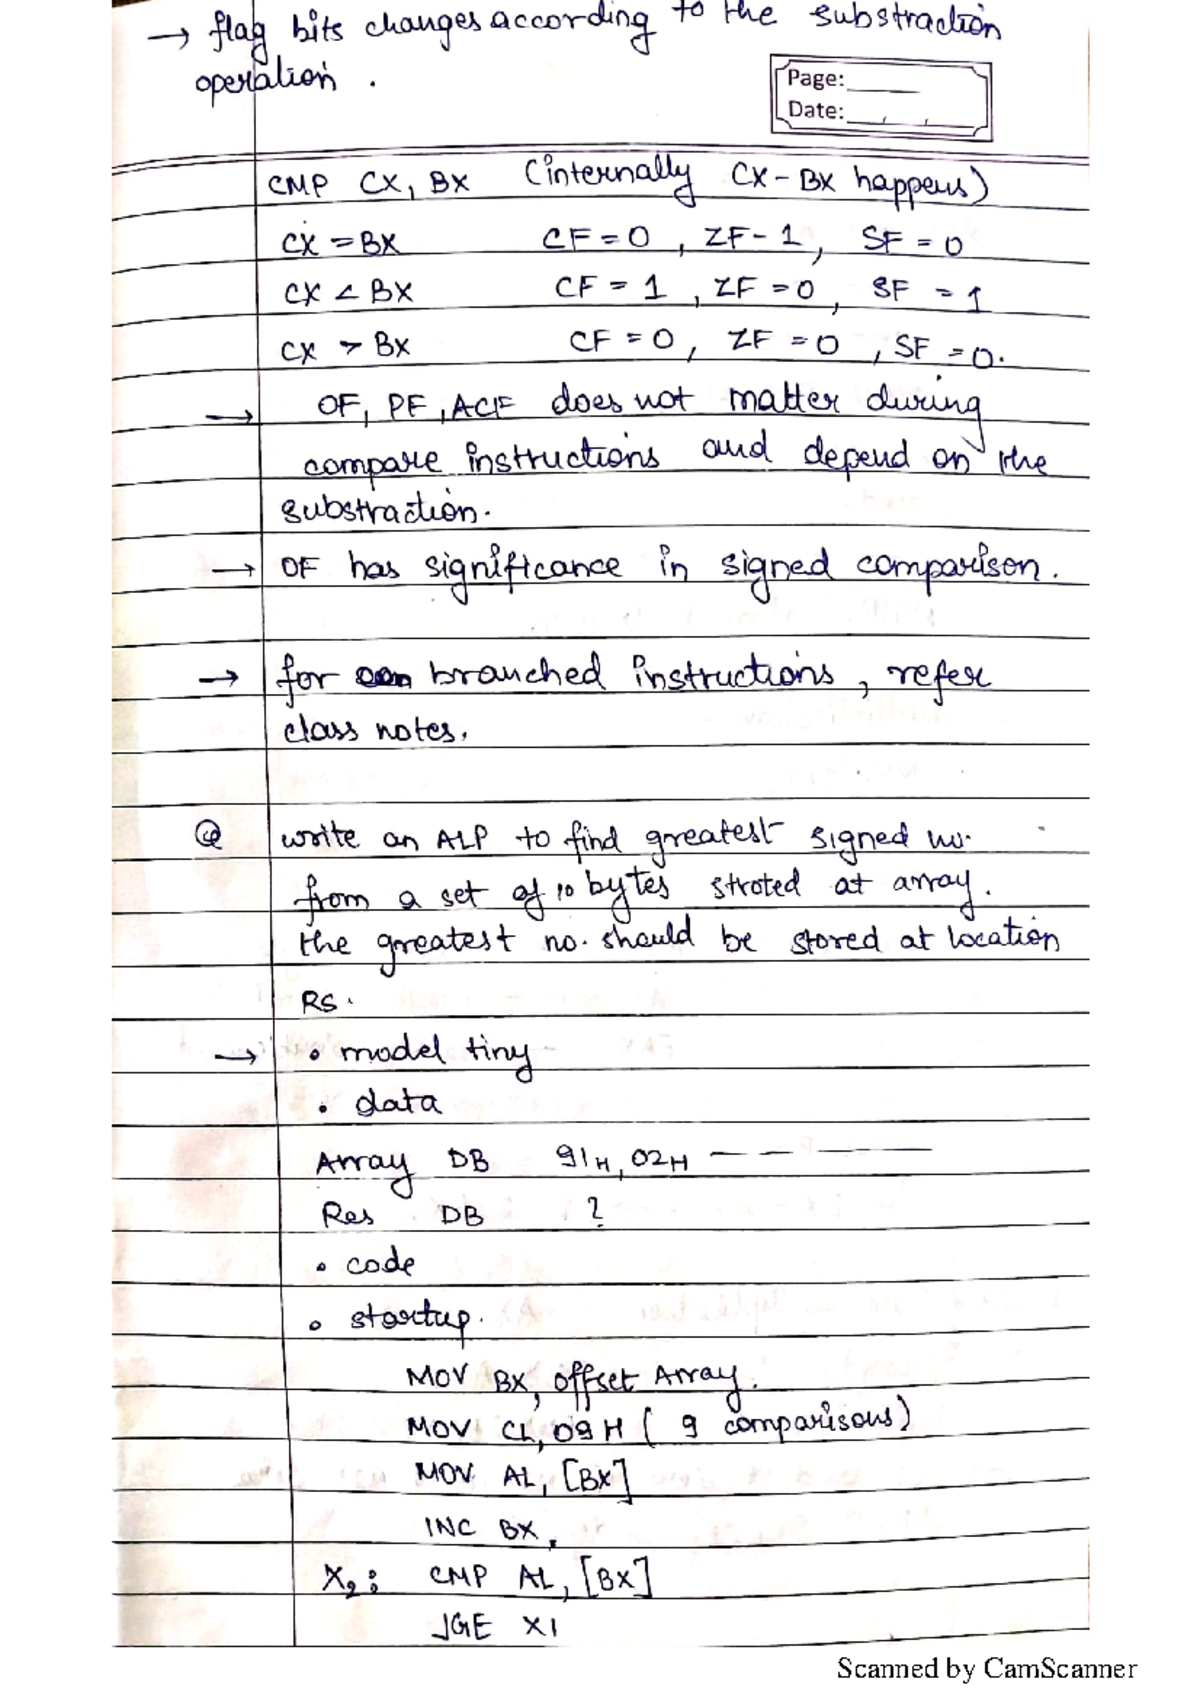 → flag bits changes according to the substraction
operation.
Page:
Date:
CMP CX, BX (internally CX - BX happens)
CX = BX CF = 0 , ZF - 1 , SF = 0
CX < BX CF = 1 , ZF = 0 , SF = 1
CX > BX CF = 0 , ZF = 0 , SF = 0.
→ OF, PF, ACF does not matter during
compare instructions and depend on the
substraction.
→ OF has significance in signed comparison.
→ for branched instructions, refer
class notes.
Q write an ALP to find greatest signed no.
from a set of 10 bytes stroted at array.
the greatest no. should be stored at location
RS.
→ . model tiny
. data
Array DB 91H, 02H — — — —
Res DB ?
. code
. startup.
MOV BX, offset Array.
MOV CL, 09H ( 9 comparisons)
MOV AL, [BX]
INC BX,
X2: CMP AL, [BX]
JGE X1
Scanned by CamScanner